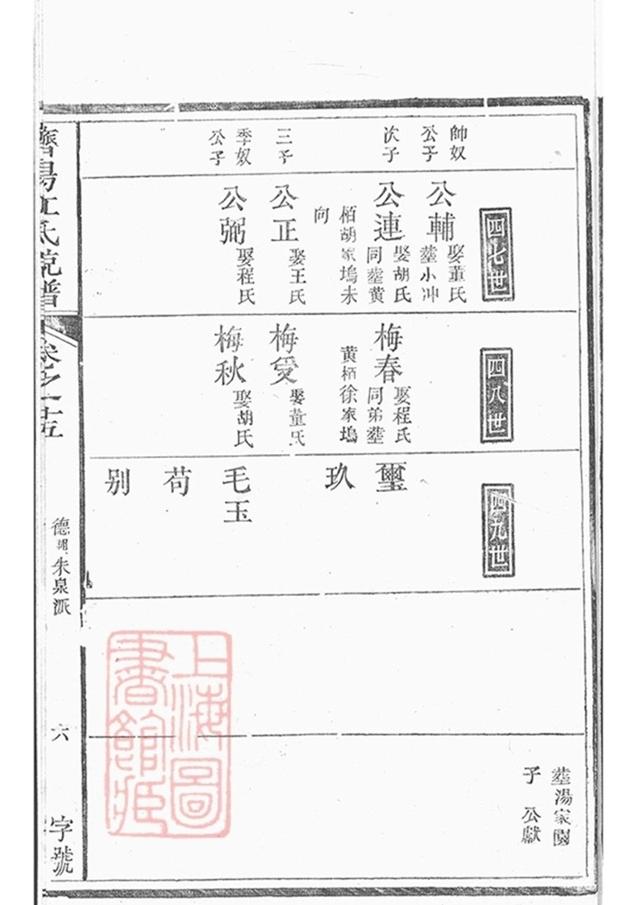 四七世
帥奴公子
公輔
娶董氏
塟小冲
次子
公連
娶胡氏
同塟黄
栢胡家塢未
向
三子
公正
娶王氏
季奴公子
公弼
娶程氏
四八世
梅春
娶程氏
同弟塟
黄栢徐家塢
梅受
娶董氏
梅秋
娶胡氏
四九世
璽
玖
毛玉
苟
别
塟湯家園
子公獻
濟陽江氏統譜
卷之十五
德明朱泉派
六
字號
上海圖書館藏